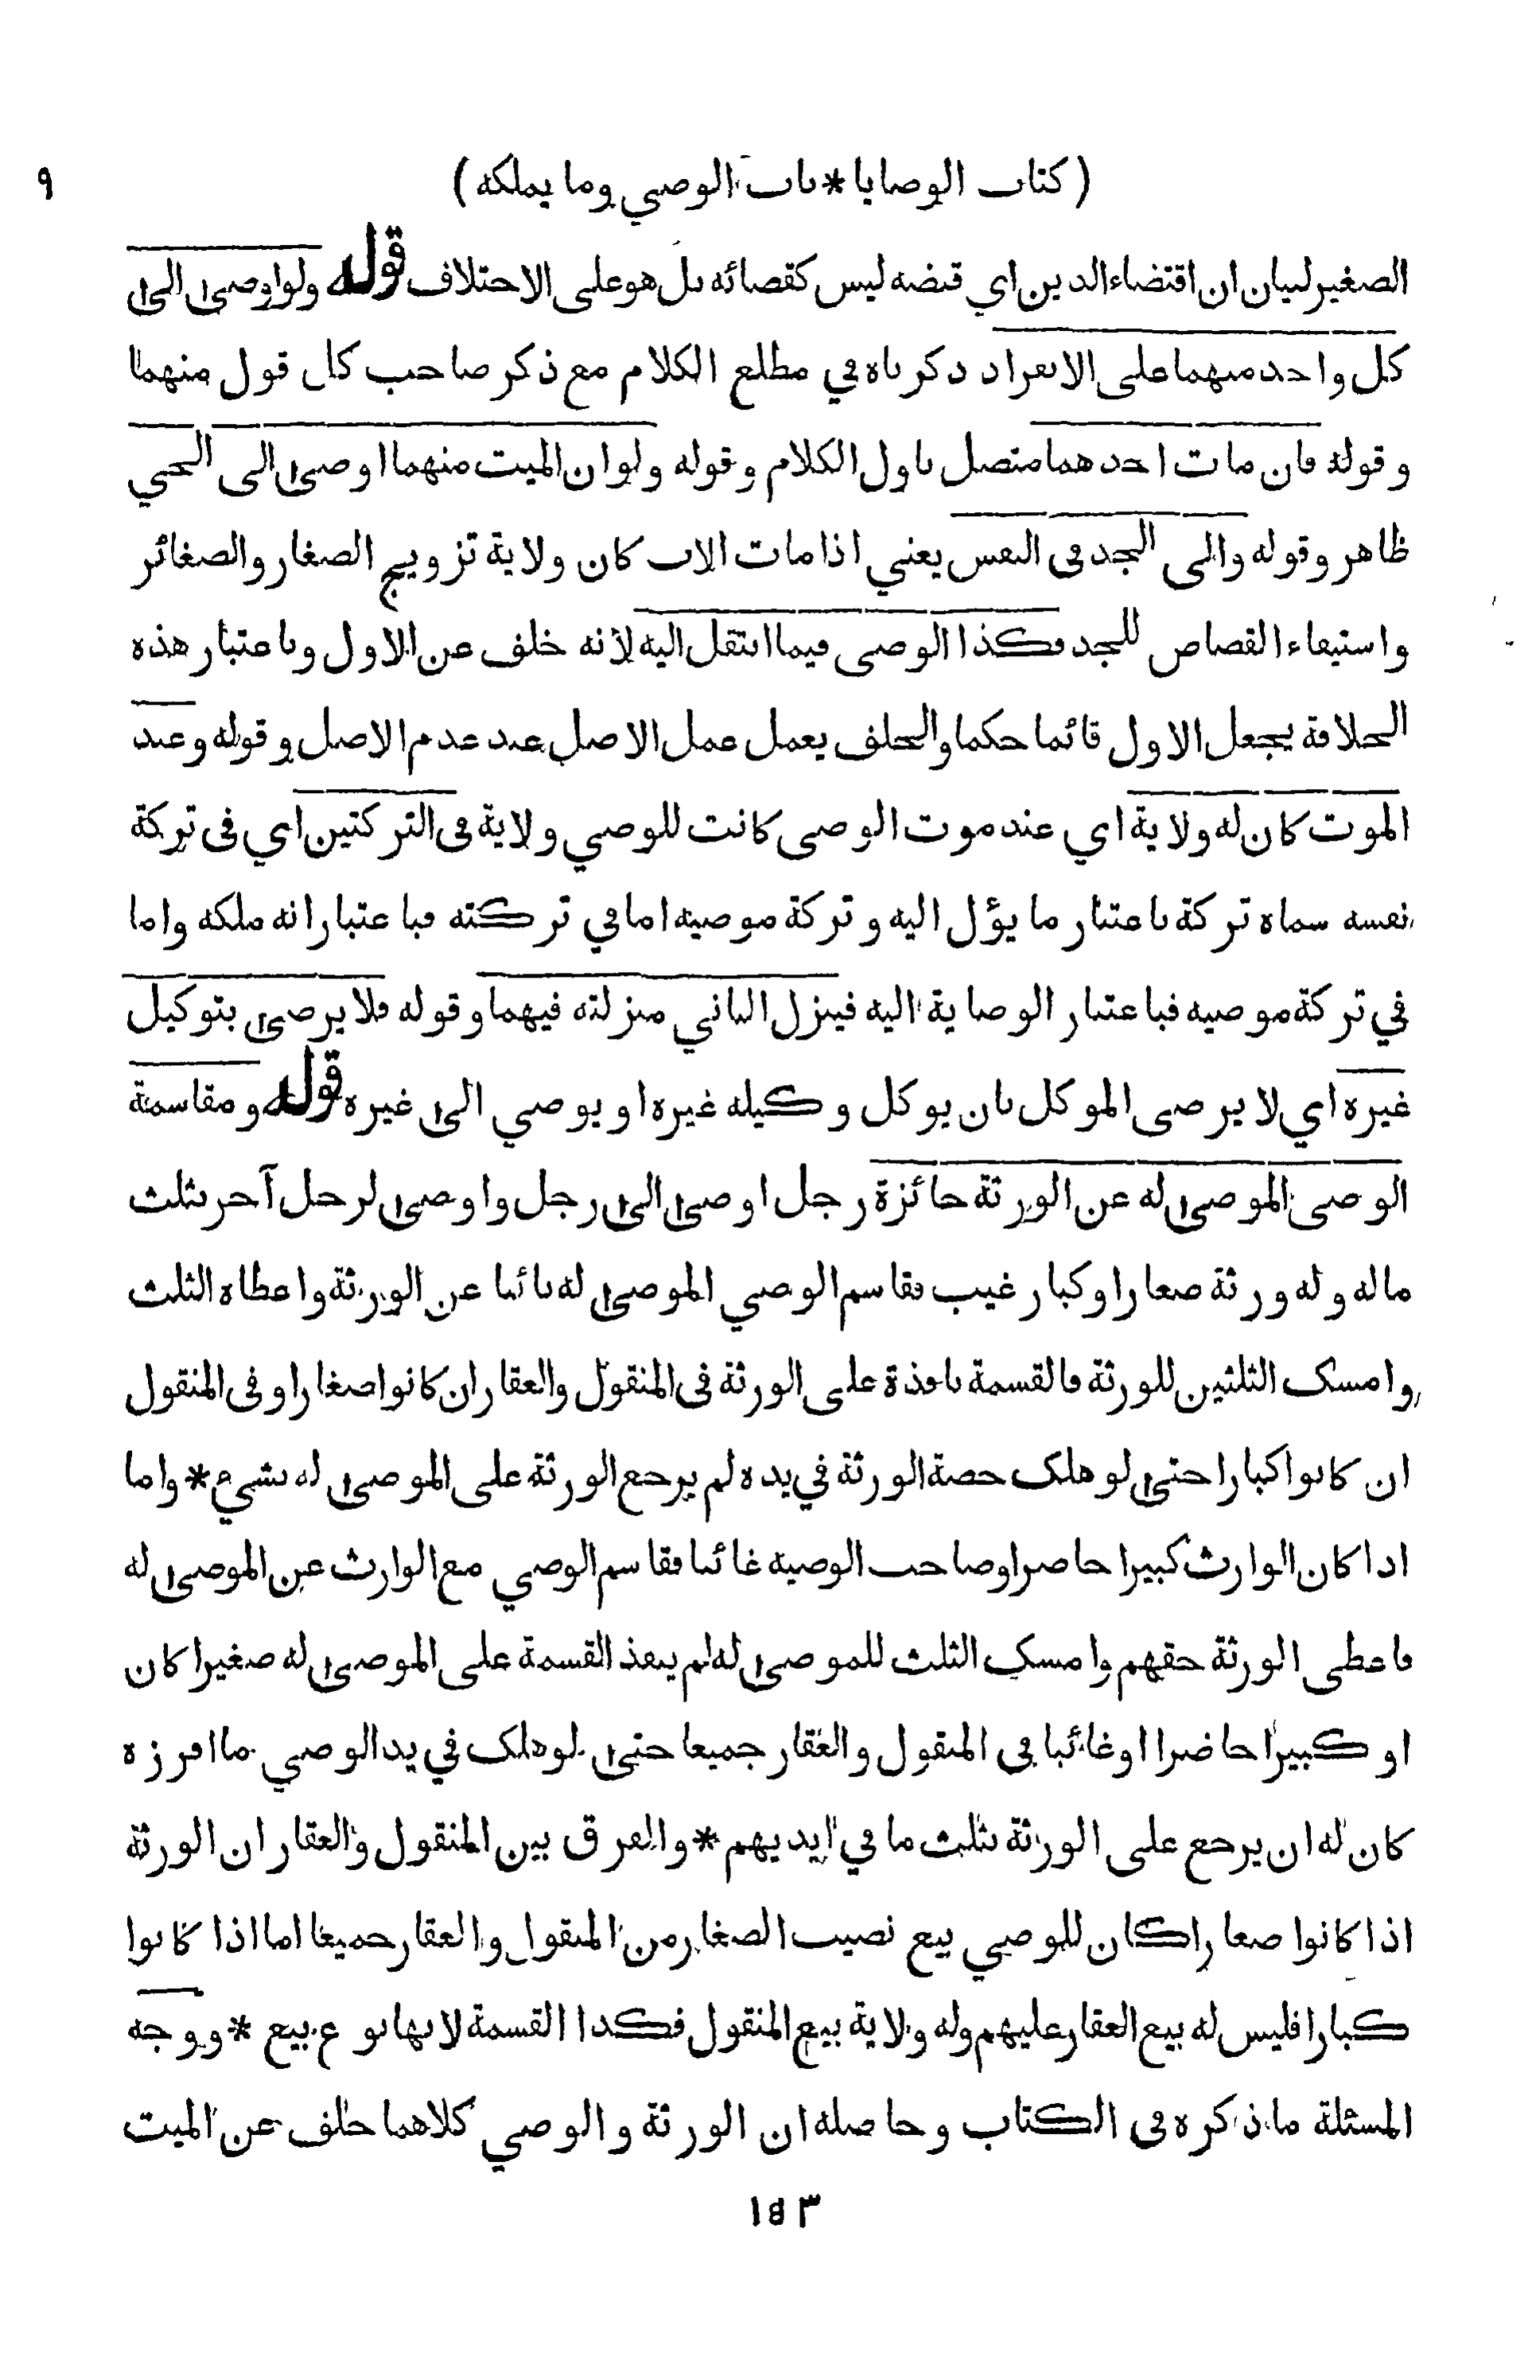 (كتاب الوصايا * باب الوصي وما يملكه)
الصغير لبيان ان اقتضاء الدين اي قبضه ليس كقضائه بل هو على الاختلاف قوله ولو اوصى الى
كل واحد منهما على الانفراد ذكرناه في مطلع الكلام مع ذكر صاحب كل قول منهما
وقوله فان مات احدهما متصل باول الكلام وقوله ولو ان الميت منهما اوصى الى الحي
ظاهر وقوله والى الجد في النفس يعني اذا مات الاب كان ولاية تزويج الصغار والصغائر
واستيفاء القصاص للجد فكذا الوصي فيما انتقل اليه لانه خلف عن الاول وباعتبار هذه
الخلافة يجعل الاول قائما حكما والخلف يعمل عمل الاصل عند عدم الاصل وقوله وعند
الموت كان له ولاية اي عند موت الوصي كانت للوصي ولاية في التركتين اي في تركة
نفسه سماه تركة باعتبار ما يؤل اليه وتركة موصيه اما في تركته فباعتبار انه ملكه واما
في تركة موصيه فباعتبار الوصاية اليه فينزل الثاني منزلته فيهما وقوله فلا يرضى بتوكيل
غيره اي لا يرضى الموكل بان يوكل وكيله غيره او يوصي الى غيره قوله ومقاسمة
الوصي الموصى له عن الورثة جائزة رجل اوصى الى رجل واوصى لرجل آخر بثلث
ماله وله ورثة صغار او كبار غيب فقاسم الوصي الموصى له نائبا عن الورثة واعطاه الثلث
وامسك الثلثين للورثة فالقسمة نافذة على الورثة في المنقول والعقار ان كانوا صغارا وفي المنقول
ان كانوا كبارا حتى لو هلك حصة الورثة في يده لم يرجع الورثة على الموصى له بشيء * واما
اذا كان الوارث كبيرا حاضرا وصاحب الوصية غائبا فقاسم الوصي مع الوارث عن الموصى له
فاعطى الورثة حقهم وامسك الثلث للموصى له لم ينفذ القسمة على الموصى له صغيرا كان
او كبيرا حاضرا او غائبا في المنقول والعقار جميعا حتى لو هلك في يد الوصي ما افرزه
كان له ان يرجع على الورثة بثلث ما في ايديهم * والفرق بين المنقول والعقار ان الورثة
اذا كانوا صغارا كان للوصي بيع نصيب الصغار من المنقول والعقار جميعا اما اذا كانوا
كبارا فليس له بيع العقار عليهم وله ولاية بيع المنقول فكذا القسمة لانها نوع بيع * ووجه
المسئلة ما ذكره في الكتاب وحاصله ان الورثة والوصي كلاهما خلف عن الميت